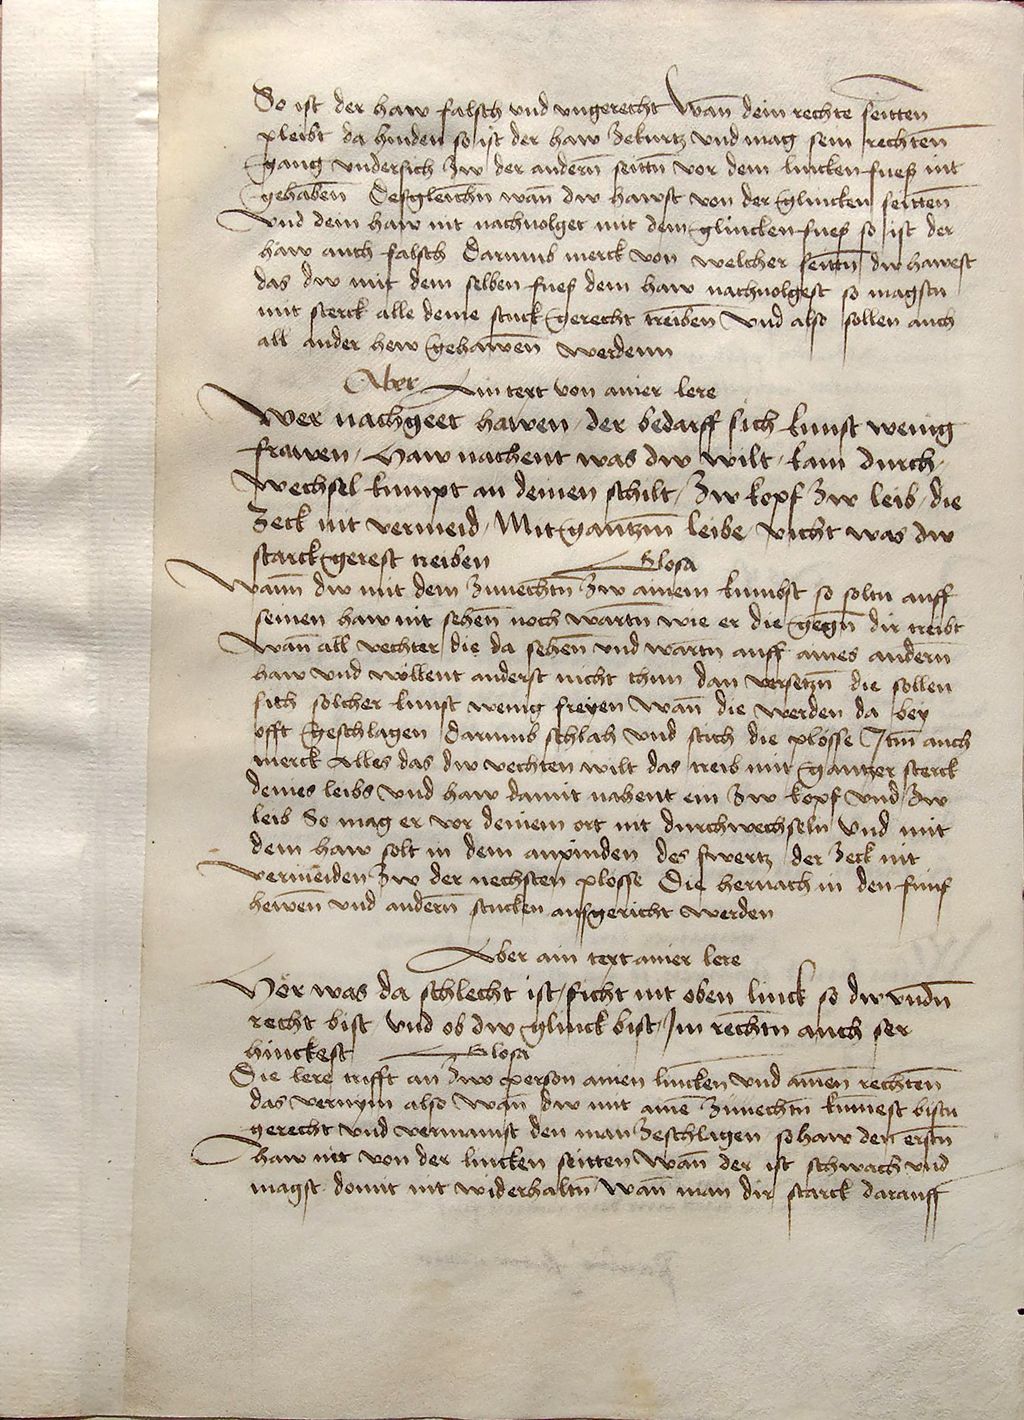 So ist der haw falsch und ungerecht Wan̄ dein rechte seittē
pleibt da hinden so ist der haw zekurtz und mag sein rechtenn̄
gang undersich zw der andern̄ seittn̄ vor dem lincken fues nit
gehaben̄ Desgleichn̄ wan̄ dw hawst von der glincken seitten̄
und dem haw nit nachuolget mit dem glincken fues so ist der
haw auch falsch Darumb merck von welcher seittn̄ dw hawest
das dw mit dem selben fues dem haw nachuolgest so magstu
mit sterck alle deine stuck gerecht treiben und also sollen auch
all ander hew gehawen̄ werdenn
Aber Ain text von ainer lere
Wer nachgeet hawen / der bedarff sich kunst wenig
frawen / Haw nachent was dw wilt / kain durch /
wechsel kumpt an deinen schilt / zw kopf zw leib / die
zeck nit vermeid / Mit gantzm̄ leibe / vicht was dw
starck gerest treiben Glosa
Wann̄ dw mit dem zuuechtn̄ zw ainem kumbst so soltu auff
seinen haw nit sehen̄ noch wartn̄ wie er die gegn̄ dir treibt
Wan̄ all vechter die da sehen̄ und wartn̄ auff aines andern̄
haw und wöllent anderst nicht thun dan versetzn̄ die sollen
sich solcher kunst wenig freyen wan̄ die werden da bey
offt geschlagen Darumb schlah und stich die plösse Itm̄ auch
merck Alles das dw vechten wilt das treib mit gantzer sterck
deines leibs und haw damit nahent ein zw kopf und zw
leib So mag er vor deinem ort nit durchwechseln und mit
dem haw solt in dem anpinden des swertz der zeck nit
vermeiden zw der nechsten plosse Die hernach in den funf
hewen̄ und andern̄ stucken ausgericht werden
Aber ain text ainer lere
Hör was da schlecht ist / ficht nit oben linck so dw undn̄
recht bist / und ob dw glinck bist / Im rechtn̄ auch ser
hinckest Glosa
Die lere trifft an zw person ainen lincken und ainen̄ rechten̄
das vernym also wan̄ dw mit aine̅ zuuechtn̄ kumest bistu
gerecht und vermainst den man zeschlagen so haw den erstn̄
haw nit von der lincken seitten wan̄ der ist schwach und
magst domit nit widerhaltn̄ wan̄ man dir starck darauff